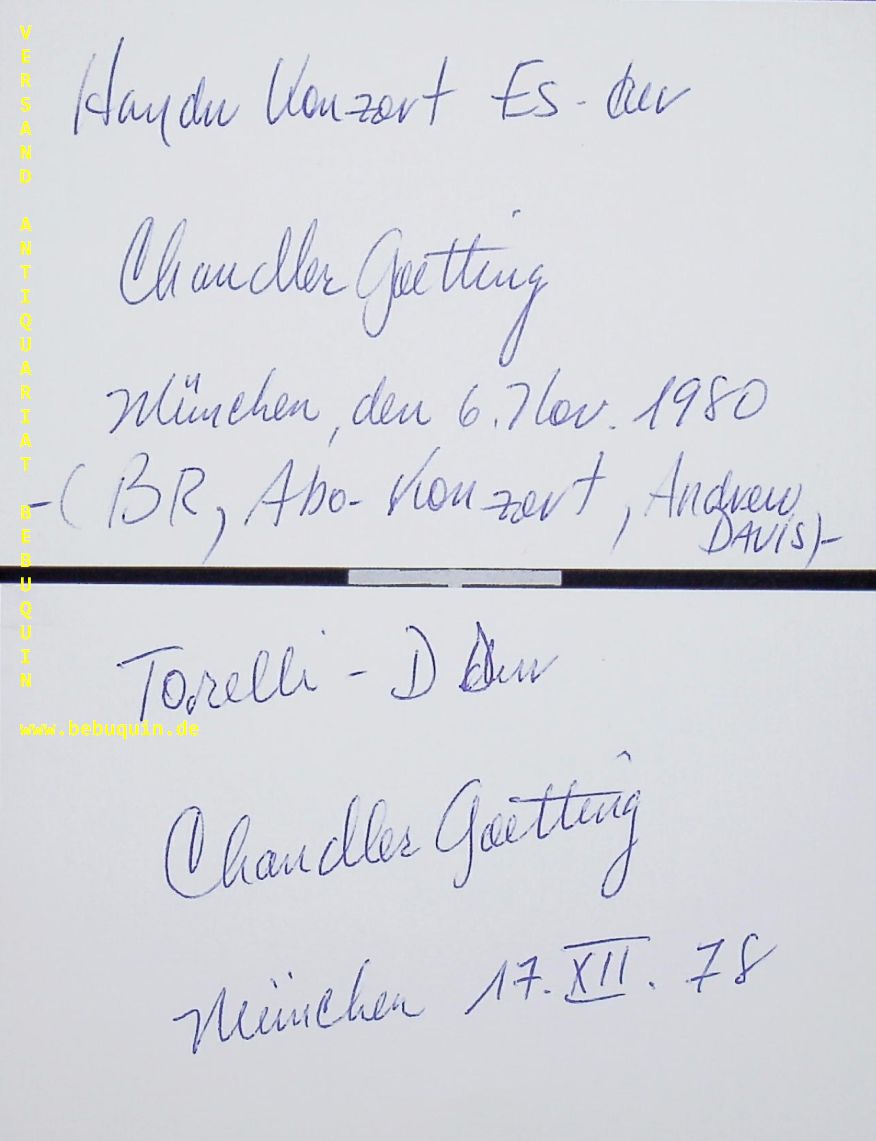 Haydn Konzert Es-dur
Chandler Goetting
München, den 6. Nov. 1980
-( BR, Abo-Konzert, Andrew
DAVIS)-
Torelli - D Dur
Chandler Goetting
München 17. XII. 78
VERSAND ANTIQUARIAT BEBUQUIN
www.bebuquin.de